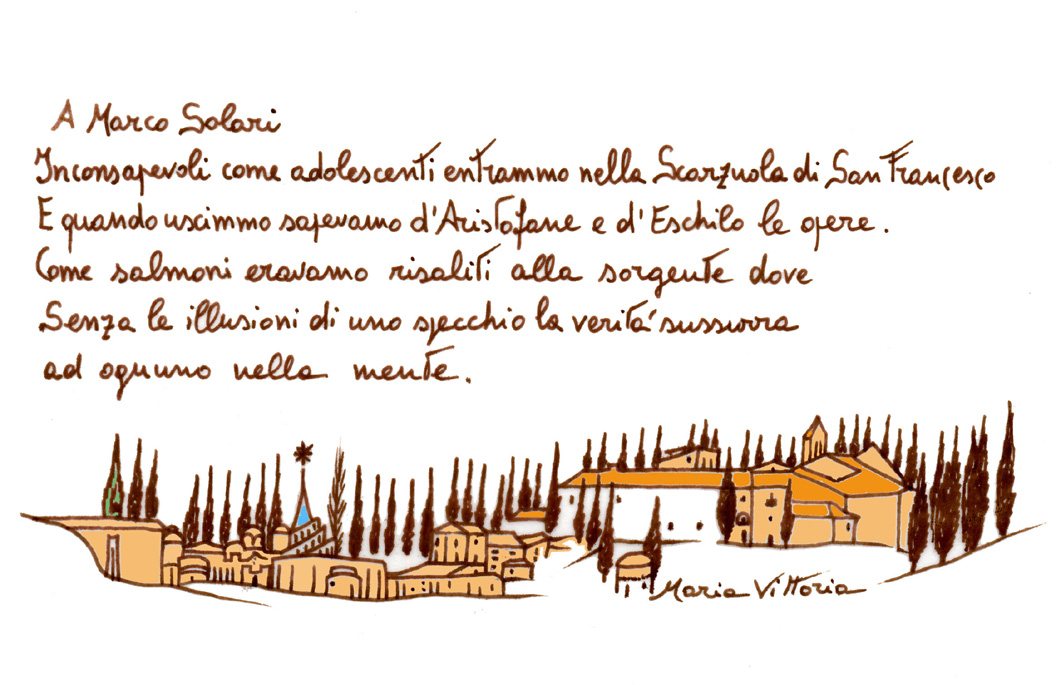 A Marco Solari
Inconsapevoli come adolescenti entrammo nella Scarzuola di San Francesco
E quando uscimmo sapevamo d'Aristofane e d'Eschilo le opere.
Come salmoni eravamo risaliti alla sorgente dove
Senza le illusioni di uno specchio la verità sussurra
ad ognuno nella mente.
Maria Vittoria